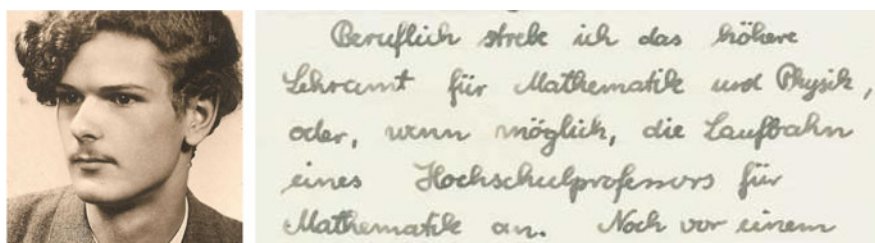 Beruflich strebe ich das höhere
Lehramt für Mathematik und Physik,
oder, wenn möglich, die Laufbahn
eines Hochschulprofessors für
Mathematik an. Noch vor einem